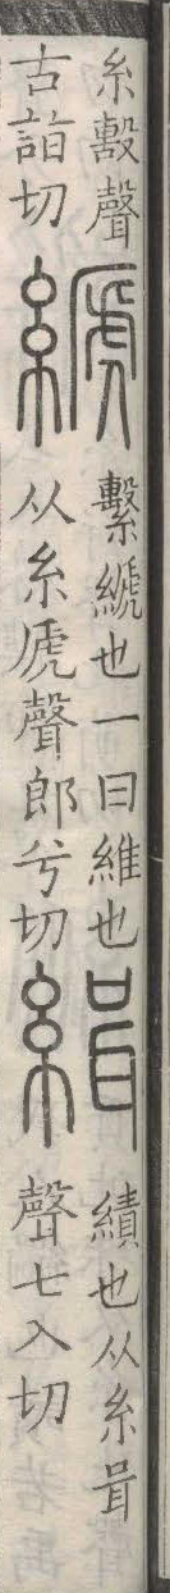 糸毄聲
古詣切
𦃇
繫𦃇也一曰維也
从糸虒聲郎兮切
緝
績也从糸咠
聲七入切